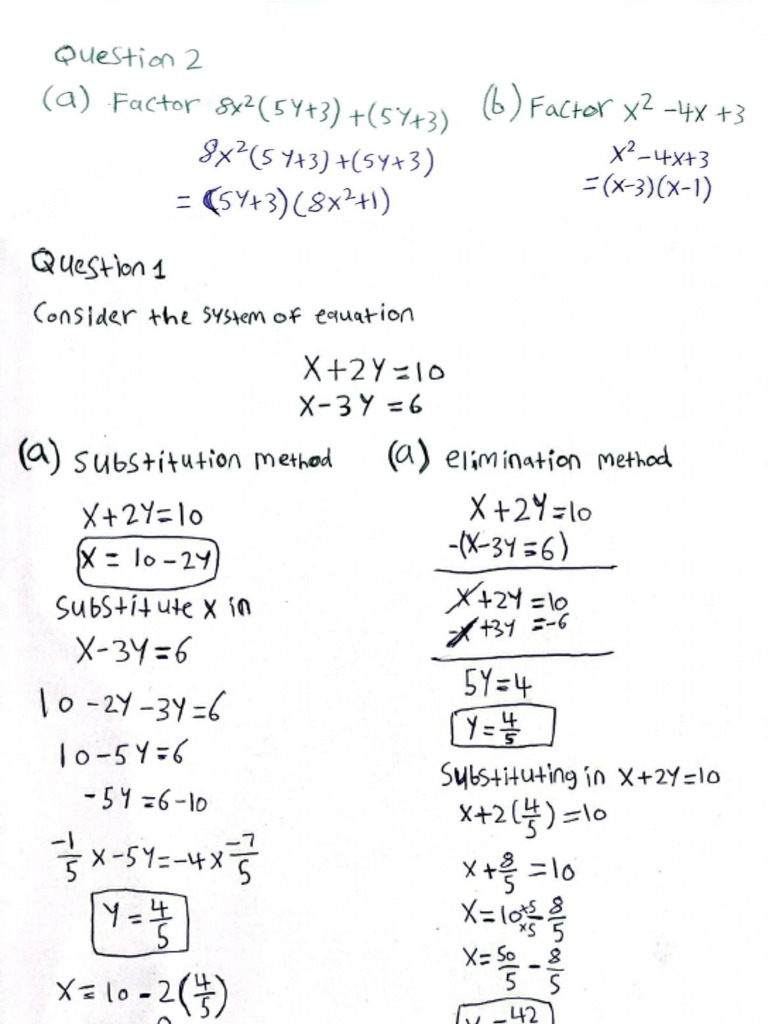 Question 2
(a) Factor 8x²(5y+3)+(5y+3)
8x²(5y+3)+(5y+3)
= (5y+3)(8x²+1)
(b) Factor x²-4x+3
x²-4x+3
=(x-3)(x-1)
Question 1
Consider the system of equation
x+2y=10
x-3y=6
(a) substitution method
x+2y=10
x=10-2y
substitute x in
x-3y=6
10-2y-3y=6
10-5y=6
-5y=6-10
-1/5 x-5y=-4x-7/5
y=4/5
x=10-2(4/5)
(a) elimination method
x+2y=10
-(x-3y=6)
x+2y=10
-x+3y=-6
5y=4
y=4/5
Substituting in x+2y=10
x+2(4/5)=10
x+8/5=10
x=10×5/×5-8/5
x=50/5-8/5
42